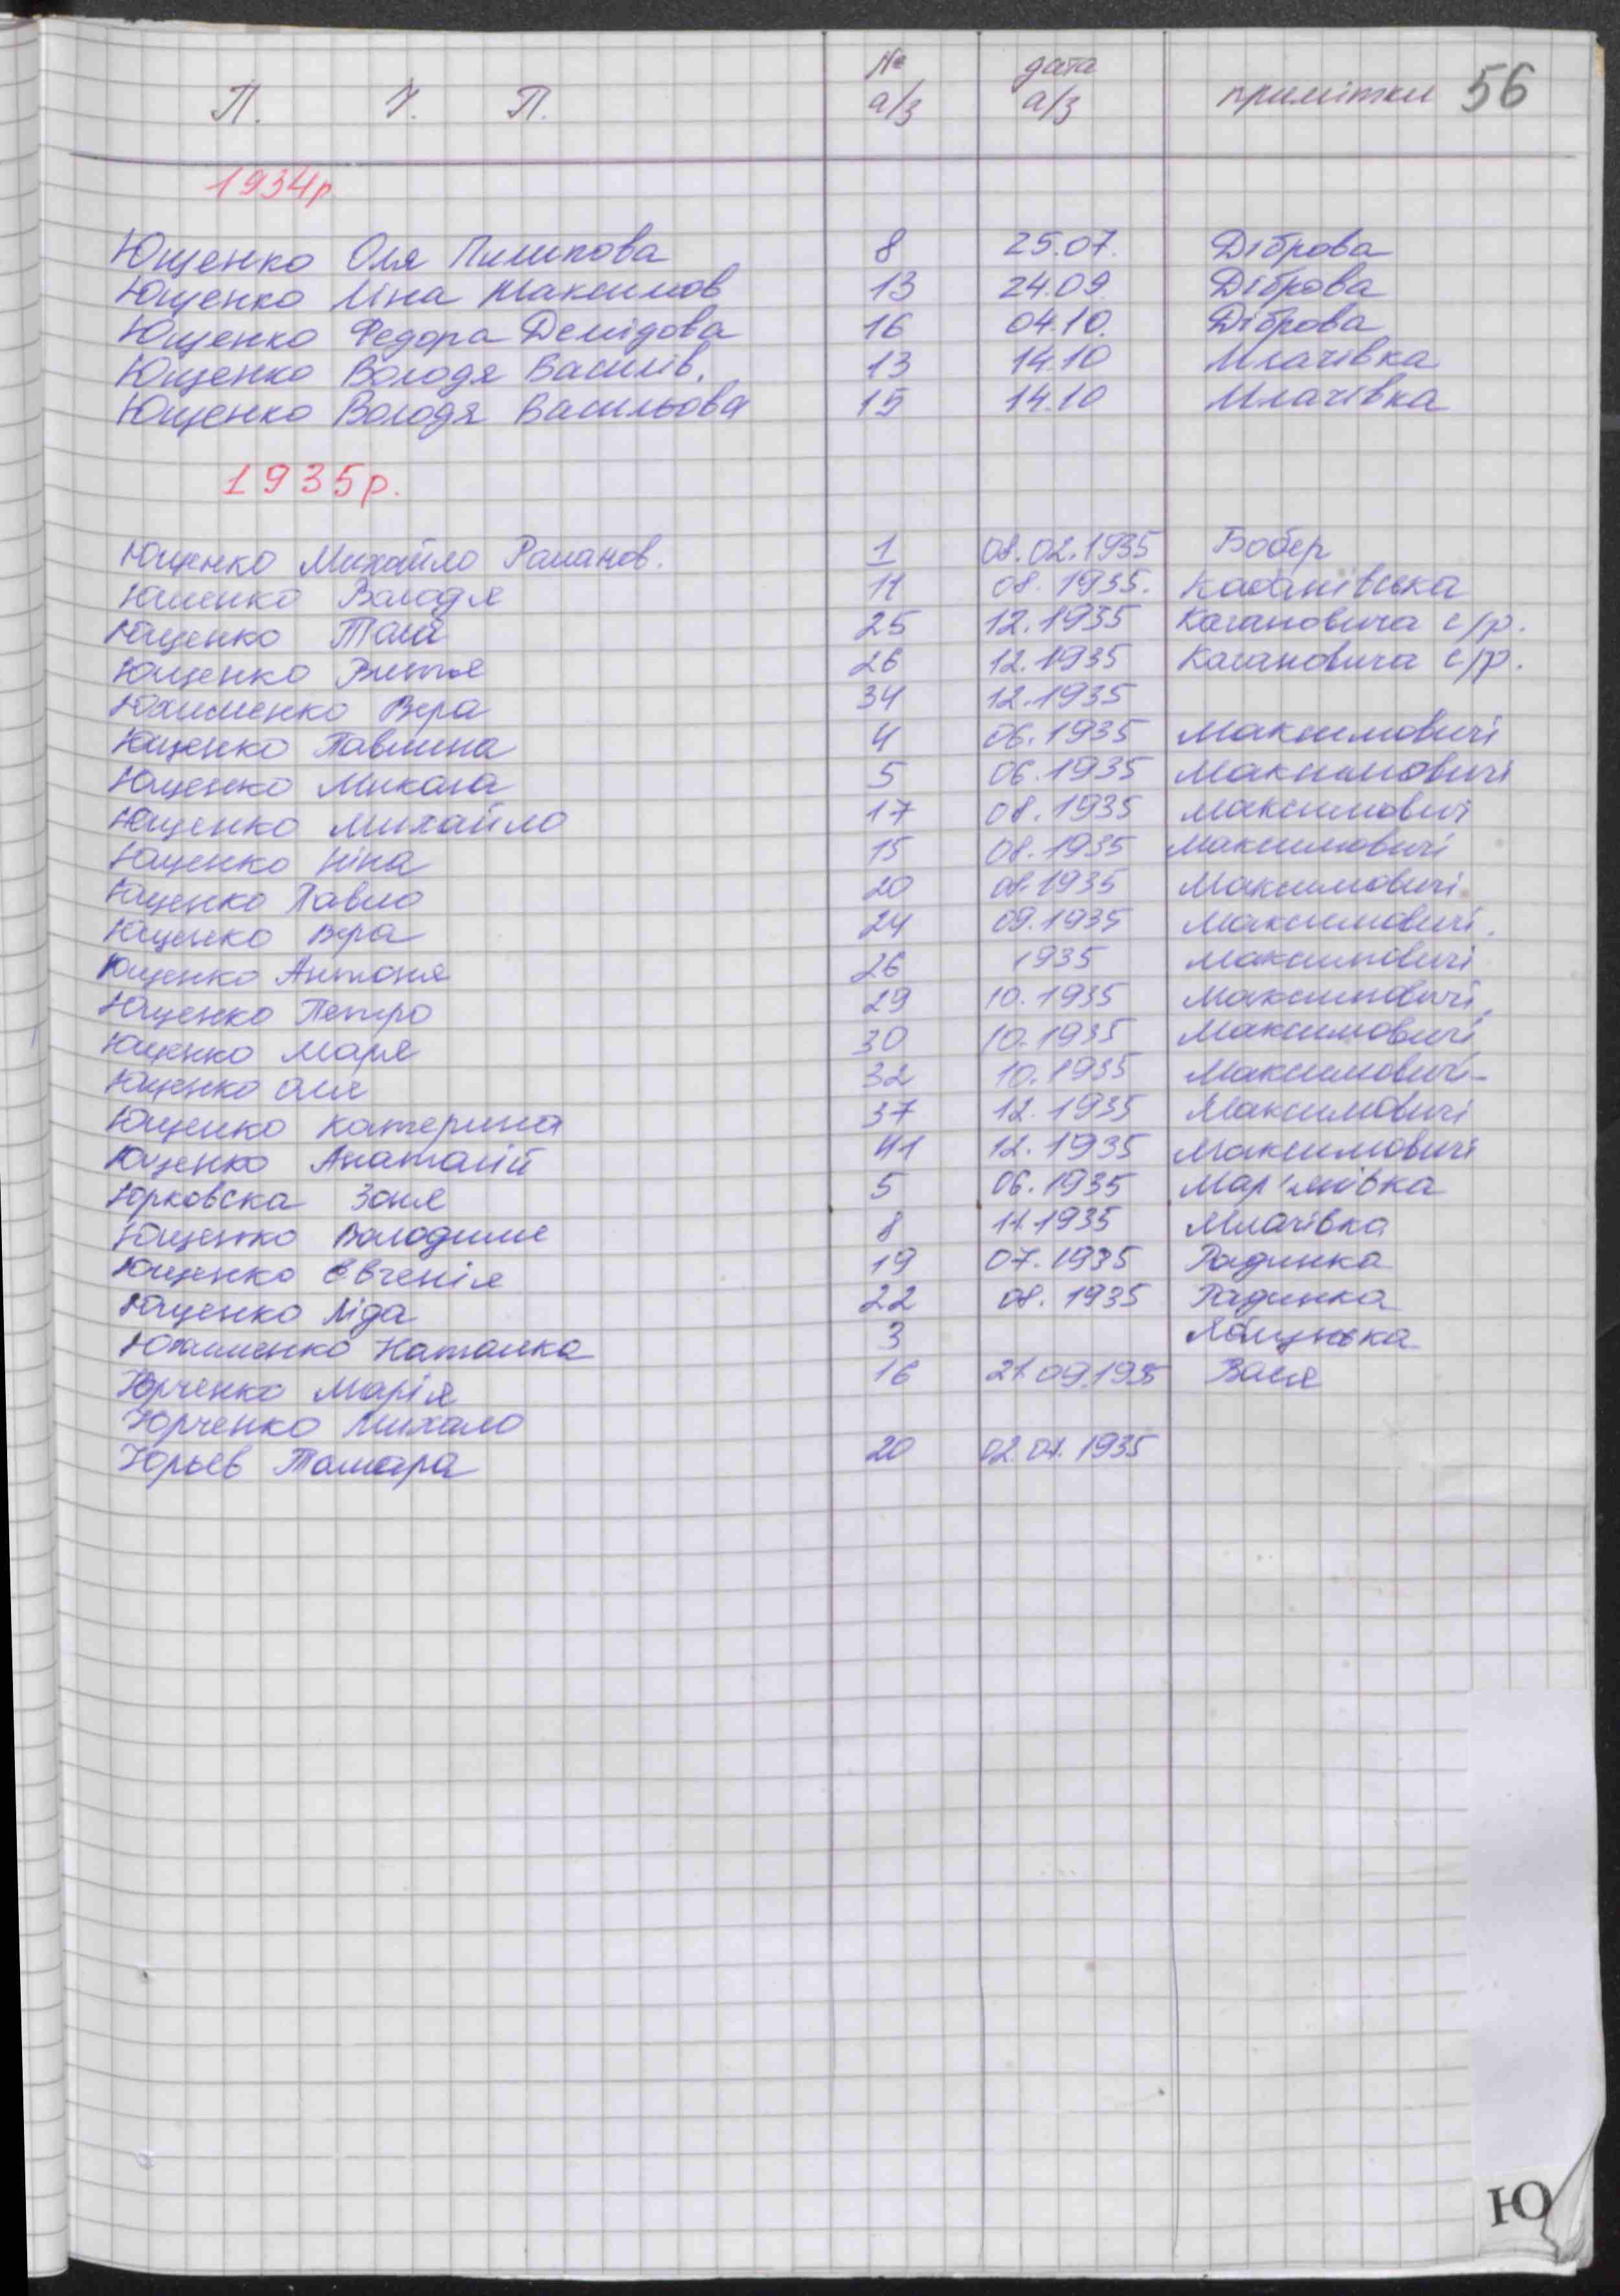 П. І. П. № а/з дата а/з примітки 56
1934р.
Ющенко Оля Пилипова 8 25.07. Діброва
Ющенко Ліна Максимов 13 24.09 Діброва
Ющенко Федора Демідова 16 04.10. Діброва
Ющенко Володя Василів. 13 14.10 Млачівка
Ющенко Володя Васильова 15 14.10 Млачівка
1935р.
Ющенко Михайло Романов. 1 08.02.1935 Бобер
Юшенко Володя 11 08.1935.
Ющенко Тася 25 12.1935 Кагановича с/р.
Ющенко Витя 26 12.1935 Кагановича с/р.
Юхименко Вера 34 12.1935
Ющенко Павлина 4 06.1935 Максимовичі
Ющенко Микола 5 06.1935 Максимовичі
Ющенко Михайло 17 08.1935 Максимовичі
Ющенко Ніна 15 08.1935 Максимовичі
Ющенко Павло 20 08.1935 Максимовичі
Ющенко Вера 24 09.1935 Максимовичі.
Ющенко Антоня 26 1935 Максимовичі
Ющенко Петро 29 10.1935 Максимовичі
Ющенко Маря 30 10.1935 Максимовичі
Ющенко Оля 32 10.1935 Максимовичі
Ющенко Катерина 37 12.1935 Максимовичі
Ющенко Анатолій 41 12.1935 Максимовичі
Юрковска Зоня 5 06.1935 Мар'янівка
Ющенко 8 11.1935 Млачівка
Ющенко Євгенія 19 07.1935 Радинка
Ющенко Ліда 22 08.1935 Радинка
Юхименко Наталка 3
Юрченко Марія 16 21.09.1935 Вася
Юрченко Михало
Юрьев Тамара 20 02.01.1935
Ю